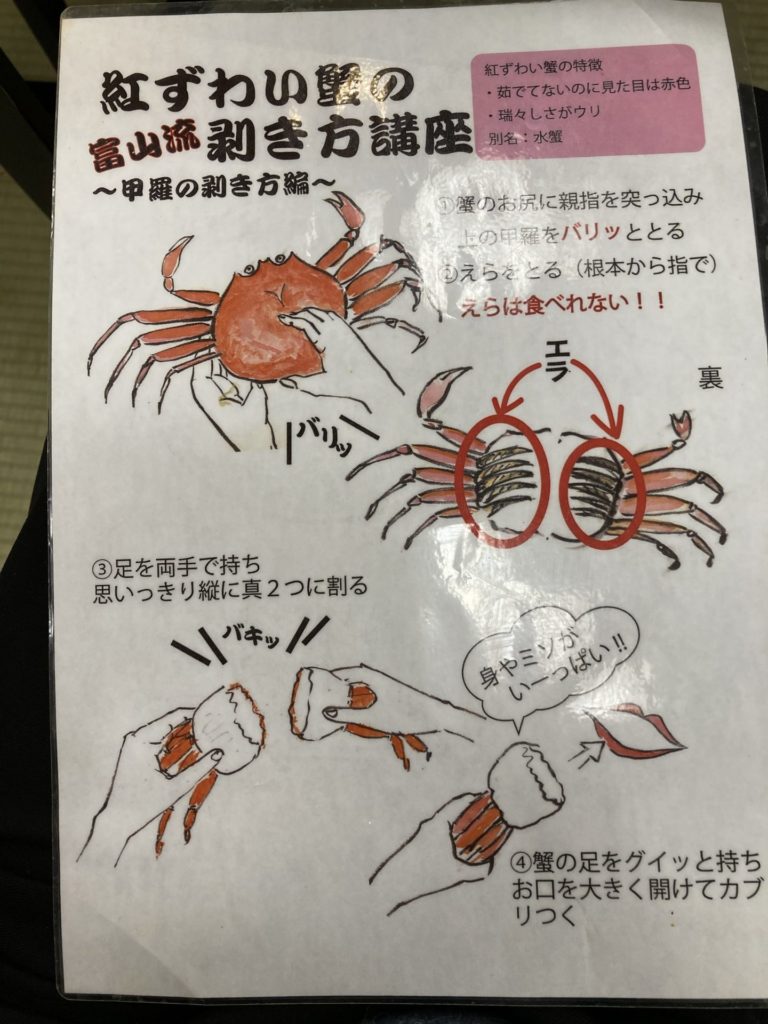 紅ずわい蟹の
富山流 剥き方講座
～甲羅の剥き方編～
紅ずわい蟹の特徴
・茹でてないのに見た目は赤色
・瑞々しさがウリ
別名：水蟹
①蟹のお尻に親指を突っ込み
上の甲羅をバリッととる
②えらをとる（根本から指で）
えらは食べれない！！
バリッ
エラ
裏
③足を両手で持ち
思いっきり縦に真２つに割る
バキッ
身やミソが
いーっぱい!!
④蟹の足をグイッと持ち
お口を大きく開けてカブ
リつく